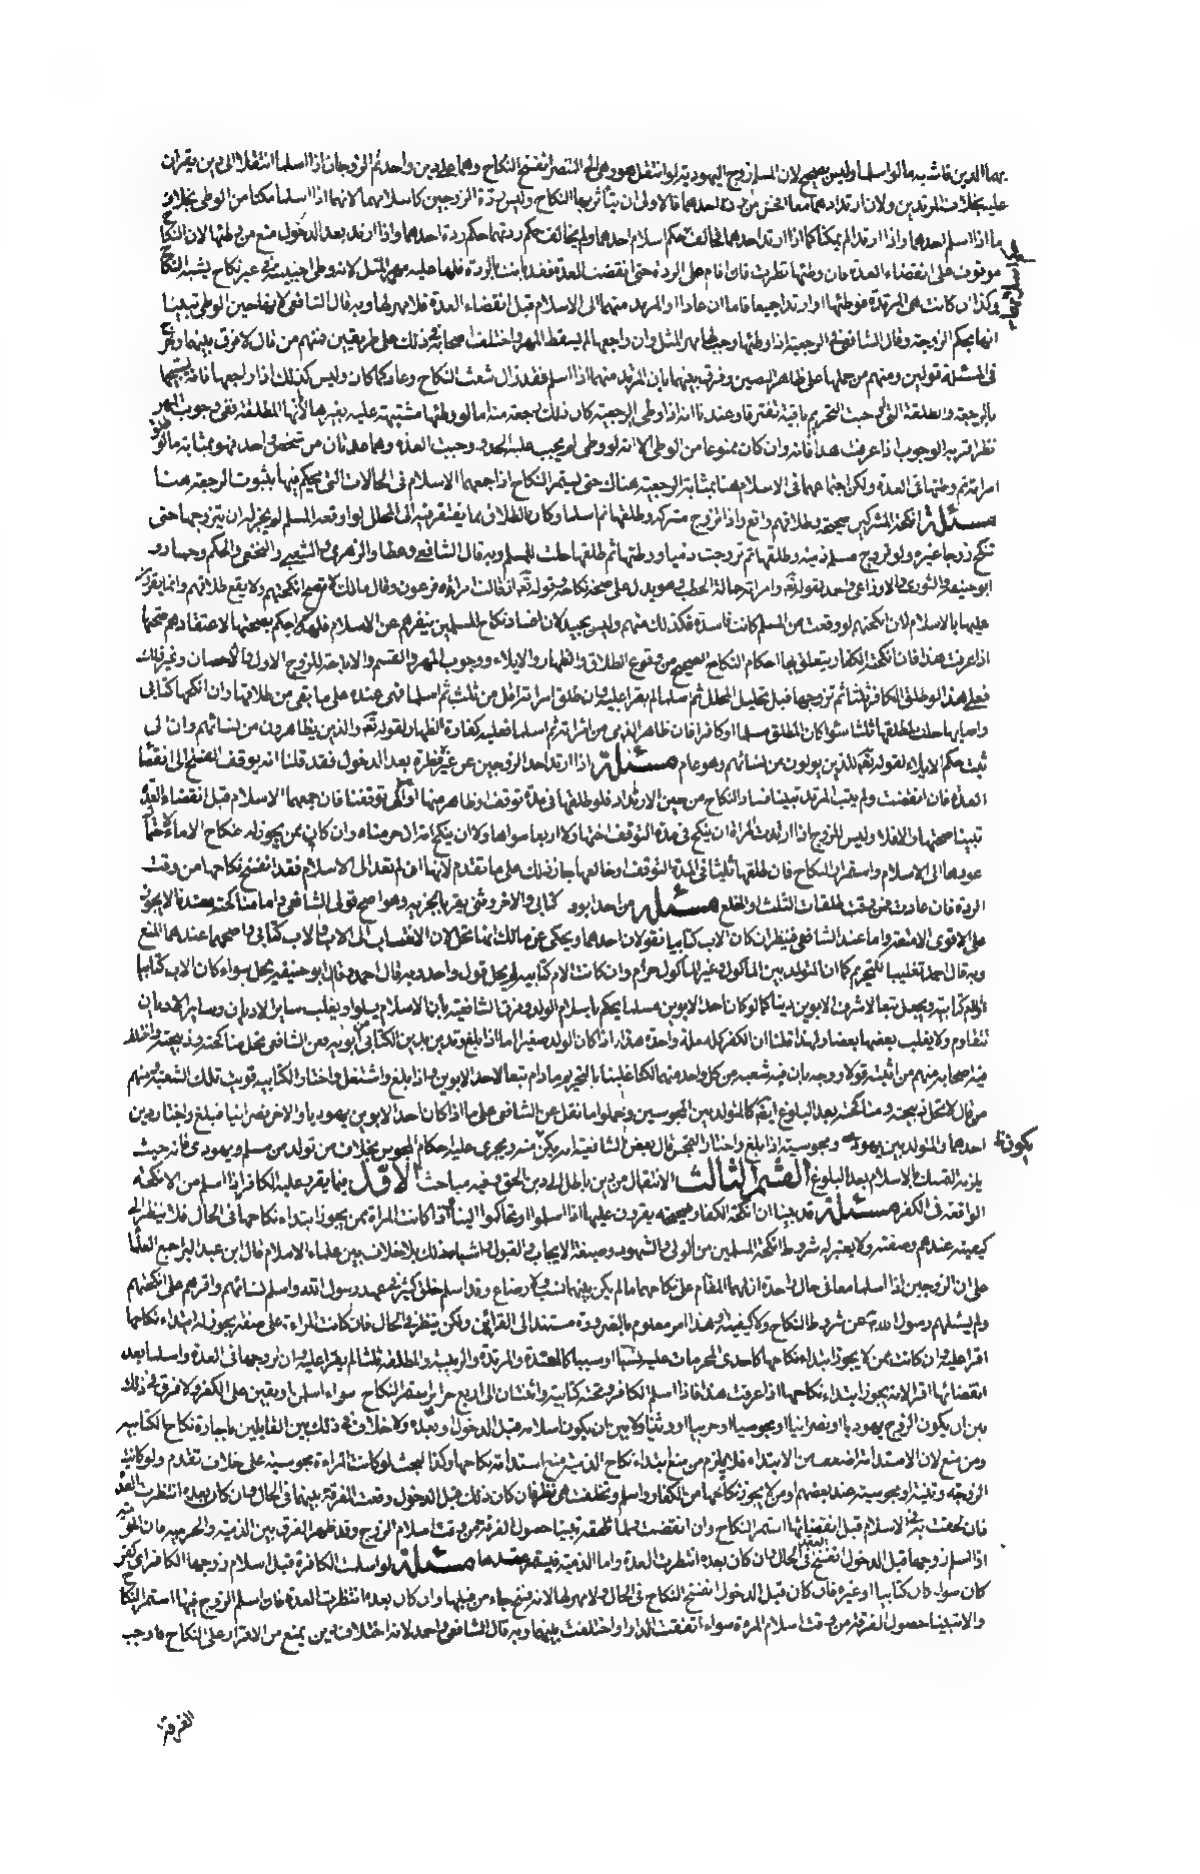 بهما الدين فاشبه ما لو اسلما وليس بصحيح لان المسلم زوج اليهودية لو انتقل هو وهى الى التنصر انفسخ النكاح وهما على دين واحد ثم الزوجان اذا اسلما انتقلا الى دين يقران
عليه بخلاف المرتدين ولان ارتدادهما معا افحش من ردة احدهما فالاولى ان يتأثر بها النكاح وليس ردة الزوجين كاسلامهما لانهما اذا اسلما مكنا من الوطى بخلاف
ما اذا اسلم احدهما واذا ارتدا لم يمكنا كما اذا ارتد احدهما فخالف حكم اسلام احدهما ولم يخالف حكم ردتهما حكم ردة احدهما واذا ارتد بعد الدخول منع من وطئها لان النكاح
موقوف على انقضاء العدة فان وطئها نظرت فان اقام على الردة حتى انقضت العدة فقد بانت بالردة فلها عليه مهر المثل لانه وطى اجنبية فى غير نكاح يشبه النكاح
وكذا ان كانت هى المرتدة فوطئها او ارتدا جميعا فاما ان عادا او المرتد منهما الى الاسلام قبل انقضاء العدة فلا مهر لها وبه قال الشافعى لانها حين الوطى تبينا
انها بحكم الزوجة وقال الشافعى فى الرجعية اذا وطئها وجب لها مهر المثل وان راجعها لم يسقط المهر واختلف اصحابه فى ذلك على طريقين فمنهم من قال لا فرق بينهما وخرج
فى المسئلة قولين ومنهم من حملها على ظاهر النصين وفرق بينهما بان المرتد منهما اذا اسلم فقد زال شعث النكاح وعاد كما كان وليس كذلك اذا راجعها فانه يستبيحها
بالرجعة والطلقة التى اوجبت التحريم باقية فافترقا وعندنا انه اذا وطى الرجعية كان ذلك رجعة منه اما لو وطئها مشتبهة عليه بغيرها لانها المطلقة ففى وجوب المهر
نظر اقربه الوجوب اذا عرفت هذا فانه وان كان ممنوعا من الوطى الا انه لو وطى لم يجب عليه الحد ووجبت العدة وهما عدتان من شخص واحد فهو بمثابة ما لو طلق
امراته ثم وطئها فى العدة ولكن اجتماعهما فى الاسلام هنا بمثابة الرجعية هناك حتى يستمر النكاح اذا جمعهما الاسلام فى الحالات التى يحكم فيها بثبوت الرجعة هناك
مسئلة انكحة المشركين صحيحة وطلاقهم واقع واذا تزوج مشرك مشركة وطلقها ثم اسلما وكان الطلاق مما يفتقر فيه الى المحلل لو اوقعه المسلم لم يجز له ان يتزوجها حتى
تنكح زوجا غيره ولو تزوج مسلم ذمية وطلقها ثم تزوجت ذميا ووطئها ثم طلقها حلت للمسلم وبه قال الشافعى وعطا والزهرى والشعبى والنخعى والحكم وحماد و
ابو حنيفة والثورى والاوزاعى واحمد لقوله تعالى وامراته حمالة الحطب وهو يدل على صحة نكاحه وقوله تعالى اذ قالت امراة فرعون وقال مالك لا تصح انكحتهم ولا يقع طلاقهم وانما يقرون
عليها بالاسلام لان انكحتهم لو وقعت من المسلم كانت فاسدة فكذلك منهم وليس بجيد لان افساد نكاح المسلمين ينفرهم عن الاسلام فلهذا حكم بصحتها لاعتقادهم صحتها
اذا عرفت هذا فان انكحة الكفار يتعلق بها احكام النكاح الصحيح من وقوع الطلاق والظهار والايلاء ووجوب المهر والقسم والاباحة للزوج الاول والاحصان وغير ذلك
فعلى هذا لو طلق الكافر ثلثا ثم تزوجها قبل تحليل المحلل ثم اسلما لم يقرا عليه وان طلق امراته اقل من ثلث ثم اسلما فهى عنده على ما بقى من طلاقها وان انكحها كتابى
واصابها حلت لمطلقها ثلثا سواء كان المطلق مسلما او كافرا فان ظاهر الذمى من امراته ثم اسلما فعليه كفارة الظهار لقوله تعالى والذين يظاهرون من نسائهم وان الى
ثبت حكم الايلاء لقوله تعالى للذين يولون من نسائهم وهو عام مسئلة اذا ارتد احد الزوجين عن غير فطرة بعد الدخول فقد قلنا انه يوقف الفسخ الى انقضاء
العدة فان انقضت ولم يتب المرتد تبينا فساد النكاح من حين الارتداد فلو طلقها فى مدة توقف او ظاهر منها او آلى توقفنا فان جمعهما الاسلام قبل انقضاء العدة
تبينا صحتها والا فلا وليس للزوج اذا ارتدت المراة ان ينكح فى مدة التوقف اختها ولا اربعا سواها ولا ان ينكح امة ان حرمناه وان كان ممن يجوز له نكاح الاماء لاحتمال
عودها الى الاسلام واستمرار النكاح فان طلقها ثلثا فى المدة التوقف او خالعها جاز ذلك على ما تقدم لانها ان لم تعد الى الاسلام فقد انفسخ نكاحها من وقت
الردة فان عادت فمن وقت الطلقات الثلث او الخلع مسئلة من احد ابويه كتابى والاخر وثنى يقر بالجزية وهو اصح قولى الشافعى واما مناكحته فعندنا لا يجوز
على الاقوى الا متعة واما عند الشافعى فينظر ان كان الاب كتابيا فقولان احدهما ويحكى عن مالك انها تحل لان الانتساب الى الاب والاب كتابى واصحهما عندهم المنع
وبه قال احمد تغليبا للتحريم كما ان المتولد بين المأكول وغير المأكول حرام وان كانت الام كتابية لم يحل قول واحد وبه قال احمد وقال ابو حنيفة يحل سواء كان الاب كتابيا
او الام كتابية ويجعل تبعا لاشرف الابوين دينا كما لو كان احد الابوين مسلما يحكم باسلام الولد وفرق الشافعية بان الاسلام يعلو او يغلب ساير الاديان وساير الاديان
تتقاوم ولا يغلب بعضها بعضا ولهذا قلنا ان الكفر كله ملة واحدة هذا اذا كان الولد صغيرا اما اذا بلغ وتدين بدين الكتابى من ابويه فعن الشافعى تحل مناكحته وذبيحته واختلف
فيه اصحابه فمنهم من اثبته قولا ووجه بان فيه شعبة من كل واحد منهما لكنا غلبنا التحريم ما دام تبعا لاحد الابوين فاذا بلغ واشتغل واختار الكتابية قويت تلك الشعبة ومنهم
من قال لا تحل ذبيحته ومناكحته بعد البلوغ ايضا كالمتولد بين المجوسيين وحملوا ما نقل عن الشافعى على ما اذا كان احد الابوين يهوديا والاخر نصرانيا فبلغ واختار دين
احدهما والمتولد بين يهودى ومجوسية اذا بلغ واختار التمجس قال بعض الشافعية انه يمكن منه ويجرى عليه احكام المجوس بخلاف من تولد من مسلم ويهودى فانه حيث
يلزمه التمسك بالاسلام بعد البلوغ القسم الثالث الانتقال من دين باطل الى دين الحق وفيه مباحث الاول فيما يقر عليه الكافر اذا اسلم من الانكحة
الواقعة فى الكفر مسئلة قد بينا ان انكحة الكفار صحيحة يقرون عليها اذا اسلموا او تحاكموا الينا اذا كانت المراة ممن يجوز ابتداء نكاحها فى الحال فلا ينظر الى
كيفية عندهم وصفته ولا يعتبر له شروط انكحة المسلمين من الولى والشهود وصيغة الايجاب والقبول واشباه ذلك بلا خلاف بين علماء الاسلام قال ابن عبد البر اجمع العلماء
على ان الزوجين اذا اسلما معا فى حال واحدة ان لهما المقام على نكاحهما ما لم يكن بينهما نسب ولا رضاع وقد اسلم خلق كثير فى عهد رسول الله واسلم نسائهم واقرهم على انكحتهم
ولم يسئلهم رسول الله عن شروط النكاح ولا كيفيته وهذا امر معلوم بالضرورة مستند الى القرائن ولكن ينظر فى الحال فان كانت المراة على صفة يجوز له ابتداء نكاحها
اقر عليه وان كانت ممن لا يجوز ابتداء نكاحها كاحدى المحرمات عليه نسبا او سببا كالمعتدة والمرتدة والوثنية والمطلقة ثلثا لم يقرا عليه وان تزوجها فى العدة واسلما بعد
انقضائها اقرا لانه يجوز ابتداء نكاحها اذا عرفت هذا فاذا اسلم الكافر وتحته كتابية واثنتان الى اربع حراير يعقد النكاح سواء اسلمن او بقين على الكفر ولا فرق فى ذلك
بين ان يكون الزوج يهوديا او نصرانيا او مجوسيا او حربيا او وثنيا ولا بين ان يكون اسلامه قبل الدخول او بعده ولا خلاف فى ذلك بين القايلين باجازة نكاح الكتابية
ومن منع لان الاستدامة اضعف من الابتداء فلا يلزم من منع ابتداء نكاح الذمية منع استدامة نكاحها وكذا البحث لو كانت المراة مجوسية على خلاف تقدم ولو كانت
الزوجة وثنية او مجوسية عند بعضهم او من لا يجوز نكاحها من الكفار واسلم وتخلفت هى نظر فان كان ذلك قبل الدخول وقعت الفرقة بينهما فى الحال وان كان بعده انتظرت العدة
فان لحقت به فى الاسلام قبل انقضائها استمر النكاح وان انقضت ولما تلحقه تبينا حصول الفرقة من وقت اسلام الزوج وقد ظهر الفرق بين الذمية والحربية فان الحربية
اذا اسلم زوجها قبل الدخول انفسخ العقد فى الحال وان كان بعده انتظرت العدة واما الذمية فيستقر عقدها مسئلة لو اسلمت الكافرة قبل اسلام زوجها الكافر اى كفر
كان سواء كان كتابيا او غيره فان كان قبل الدخول انفسخ النكاح فى الحال ولا مهر لها لانه فسخ جاء من قبلها وان كان بعده انتظرت العدة فان اسلم الزوج فيها استمر النكاح
والا تبينا حصول الفرقة من وقت اسلام المراة سواء اتفقت الدار او اختلفت بينهما وبه قال الشافعى واحمد لانه اختلاف دين يمنع من الاقرار على النكاح فاوجب
الفرقة